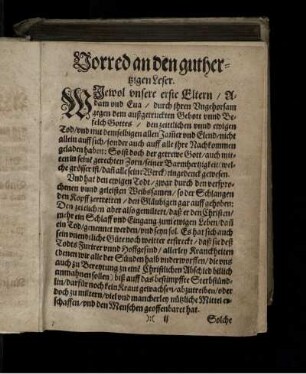 Vorred an den guther-
tzigen Leser.
WJewol vnsere erste Eltern / A-
dam vnd Eua / durch jhren Vngehorsam
gegen dem außgetruckten Gebott vnnd Be-
felch Gottes / den zeitlichen vnnd ewigen
Tod / vnd mit demselbigen allen Jamer vnd Elend / nicht
allein auff sich / sonder auch auff alle jhre Nachkommen
geladen haben: So ist doch der getrewe Gott / auch mitt-
ten in seinem gerechten Zorn / seiner Barmhertzigkeit / wel-
che grösser ist / daß alle seine Werck / eingedenck gewesen.
Vnd hat den ewigen Todt / zwar durch den verspro-
chenen vnnd geleisten Weibssamen / so der Schlangen
den Kopff zerretten / den Gläubigen gar auffgehoben:
Den zeitlichen aber also gemiltert / daß er den Christen
mehr ein Schlaff vnd Eingang zum ewigen Leben / dañ
ein Tod / genennet werden / vnd seyn sol. Es hat sich auch
sein vnentliche Güte noch weitter erstreckt / daß sie deß
Todes Furirer vnnd Hoffgesind / allerley Kranckheiten
(denen wir alle der Sünden halb vnderworffen / die vns
auch zu Bereytung zu eim Christlichen Abschied billich
anmahnen sollen) biß auff das bestimpte Sterbstünd-
lin / darfür noch kein Kraut gewachsen / abzutreiben / oder
doch zu miltern / viel vnd mancherley nützliche Mittel er-
schaffen / vnd den Menschen geoffenbaret hat.
ij Solche